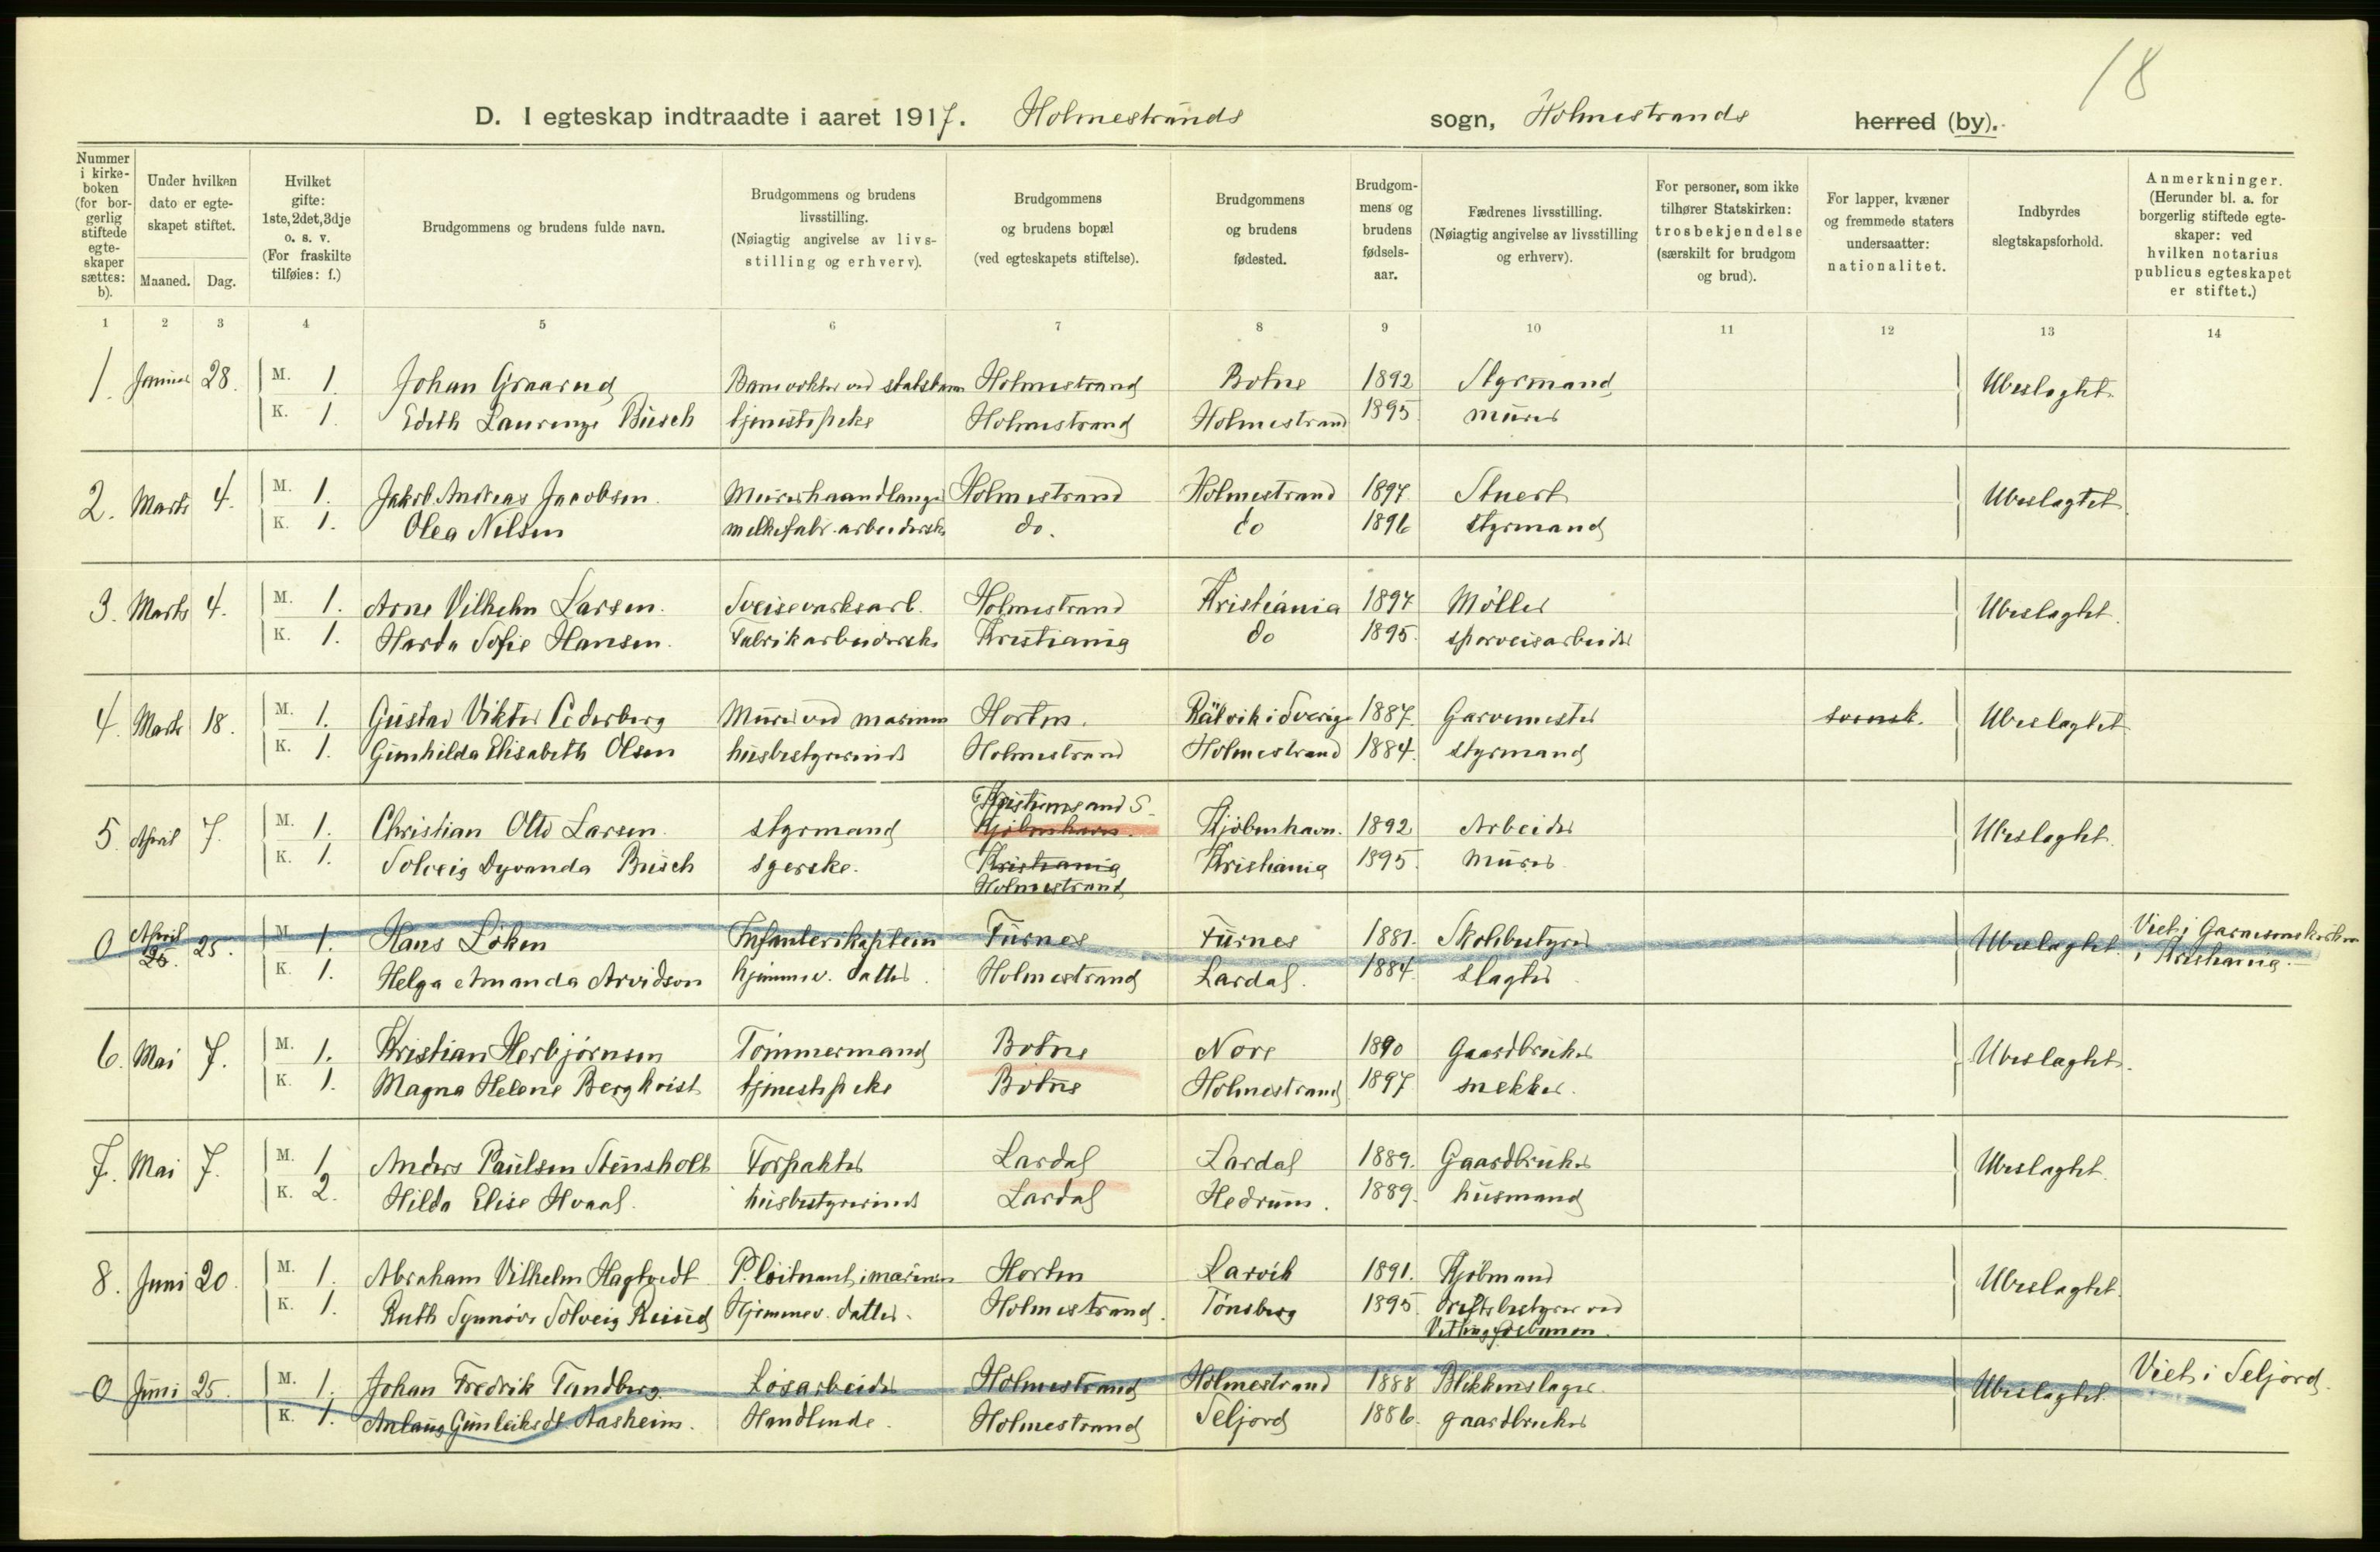 18
D. I egteskap indtraadte i aaret 1917. Holmestrands sogn, Holmestrands herred (by).
Nummer i kirkeboken (for borgerlig stiftede egteskaper sættes: b).
Under hvilken dato er egteskapet stiftet.
Maaned. Dag.
Hvilket gifte: 1ste, 2det, 3dje o. s. v. (For fraskilte tilføies: f.)
Brudgommens og brudens fulde navn.
Brudgommens og brudens livsstilling. (Nøiagtig angivelse av livsstilling og erhverv).
Brudgommens og brudens bopæl (ved egteskapets stiftelse).
Brudgommens og brudens fødested.
Brudgommens og brudens fødselsaar.
Fædrenes livsstilling. (Nøiagtig angivelse av livsstilling og erhverv).
For personer, som ikke tilhører Statskirken: trosbekjendelse (særskilt for brudgom og brud).
For lapper, kvæner og fremmede staters undersaatter: nationalitet.
Indbyrdes slegtskapsforhold.
Anmerkninger. (Herunder bl. a. for borgerlig stiftede egteskaper: ved hvilken notarius publicus egteskapet er stiftet.)
1 2 3 4 5 6 7 8 9 10 11 12 13 14
1. Januar 28. M. 1. Johan Graarud Banevokter ved statsbanen Holmestrand Botne 1892 Styrmand Ubeslegtet.
K. 1. Edith Laurenze Busch tjenestepike Holmestrand Holmestrand 1895 murer
2. Marts 4. M. 1. Jakob Andreas Jacobsen. Murerhaandlanger Holmestrand Holmestrand 1897 Stuert Ubeslegtet.
K. 1. Olea Nilsen melkefabr. arbeiderske do. do 1896 styrmand
3. Marts 4. M. 1. Arne Vilhelm Larsen. Sveiseverksarb. Holmestrand Kristiania 1897 Møller Ubeslegtet.
K. 1. Harda Sofie Hansen. Fabrikarbeiderske Kristiania do 1895. sporveisarbeider
4. Marts 18. M. 1. Gustav Viktor Cederberg Murer ved marinen Horten. Rälvik i Sverige 1887. Garvemester svensk. Ubeslegtet
K. 1. Gunhilda Elisabeth Olsen husbestyrerinde Holmestrand Holmestrand 1884. styrmand
Kristiansand S.
5. April 7. M. 1. Christian Otto Larsen. styrmand Kjøbenhavn. Kjøbenhavn. 1892 Arbeider Ubeslegtet.
K. 1. Solveig Dyvanda Busch syerske. Kristiania Kristiania 1895. Murer
Holmestrand
0 April 25. 25. M. 1. Hans Løken Infanterikaptein Furnes Furnes 1881. Skolebestyrer Ubeslegtet. Viet i Garnisonskirken
K. 1. Helga Amanda Arvidson hjemmev. datter. Holmestrand Lardal. 1884. slagter i Kristiania.
6. Mai 7. M. 1. Kristian Herbjørnsen Tømmermand Botne Nore 1890 Gaardbruker Ubeslegtet.
K. 1. Magna Helene Bergkvist tjenestepike Botne Holmestrand 1897 snekker.
7. Mai 7. M. 1 Anders Paulsen Stensholt Forpakter Lardal Lardal 1889. Gaardbruker Ubeslegtet.
K. 2. Hilda Elise Hvaal. husbestyrerinde Lardal Hedrum. 1889. husmand
8. Juni 20. M. 1. Abraham Vilhelm Hagtvedt P. løitnant i marinen Horten Larvik 1891. Kjøbmand Ubeslegtet.
K. 1. Ruth Synnøve Solveig Hjemmev. datter. Holmestrand. Tønsberg 1895 Driftsbestyrer ved
Vittingfosbanen.
0 Juni 25. M. 1. Johan Fredrik Tandberg. Løsarbeider Holmestrand Holmestrand 1888 Blikkenslager. Ubeslegtet. Viet i Seljord.
K. 1. Anlaug Gunleiksdt. Aasheim. Handlende. Holmestrand Seljord 1886. gaardbruker